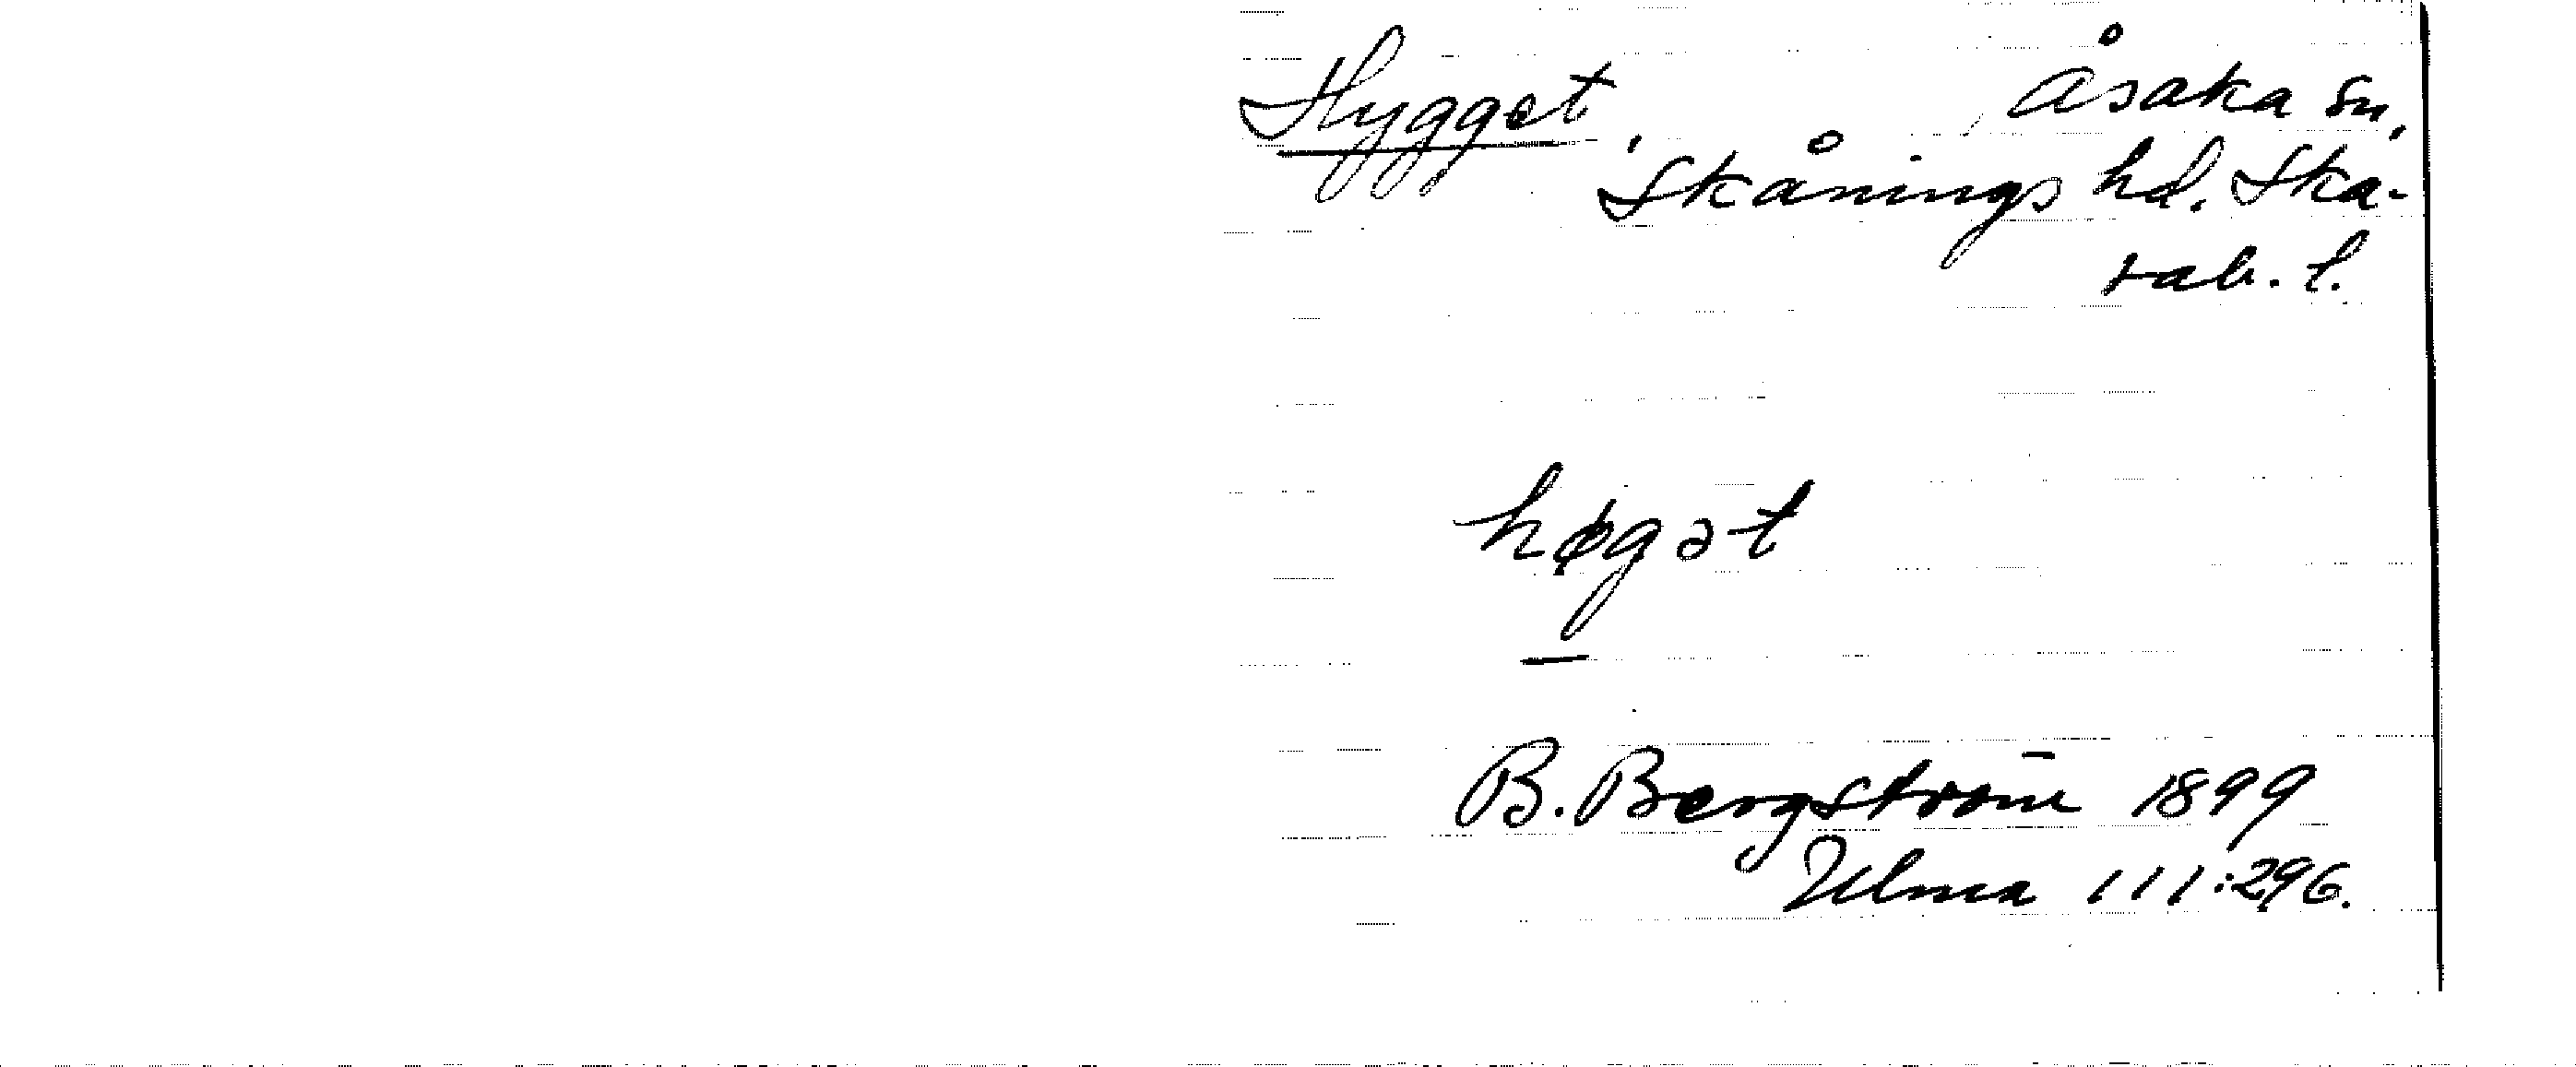 Hygget, Åsaka sn,
Skånings hd. Ska-
rab. l.
høgət
B. Bergström 1899
Ulma 111:296.